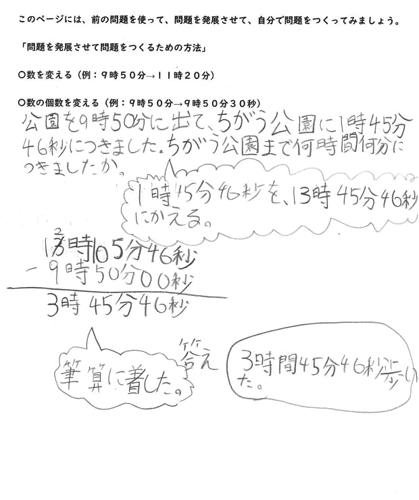 このページには、前の問題を使って、問題を発展させて、自分で問題をつくってみましょう。
「問題を発展させて問題をつくるための方法」
○数を変える（例：９時５０分→１１時２０分）
○数の個数を変える（例：９時５０分→９時５０分３０秒）
公園を9時50分に出て、ちがう公園に1時45分
46秒につきました。ちがう公園まで何時間何分に
つきましたか。
1時45分46秒を、13時45分46秒
にかえる。
13時105分46秒
2
-9時50分00秒
3時45分46秒
筆算に着した。
答え
3時間45分46秒
た。